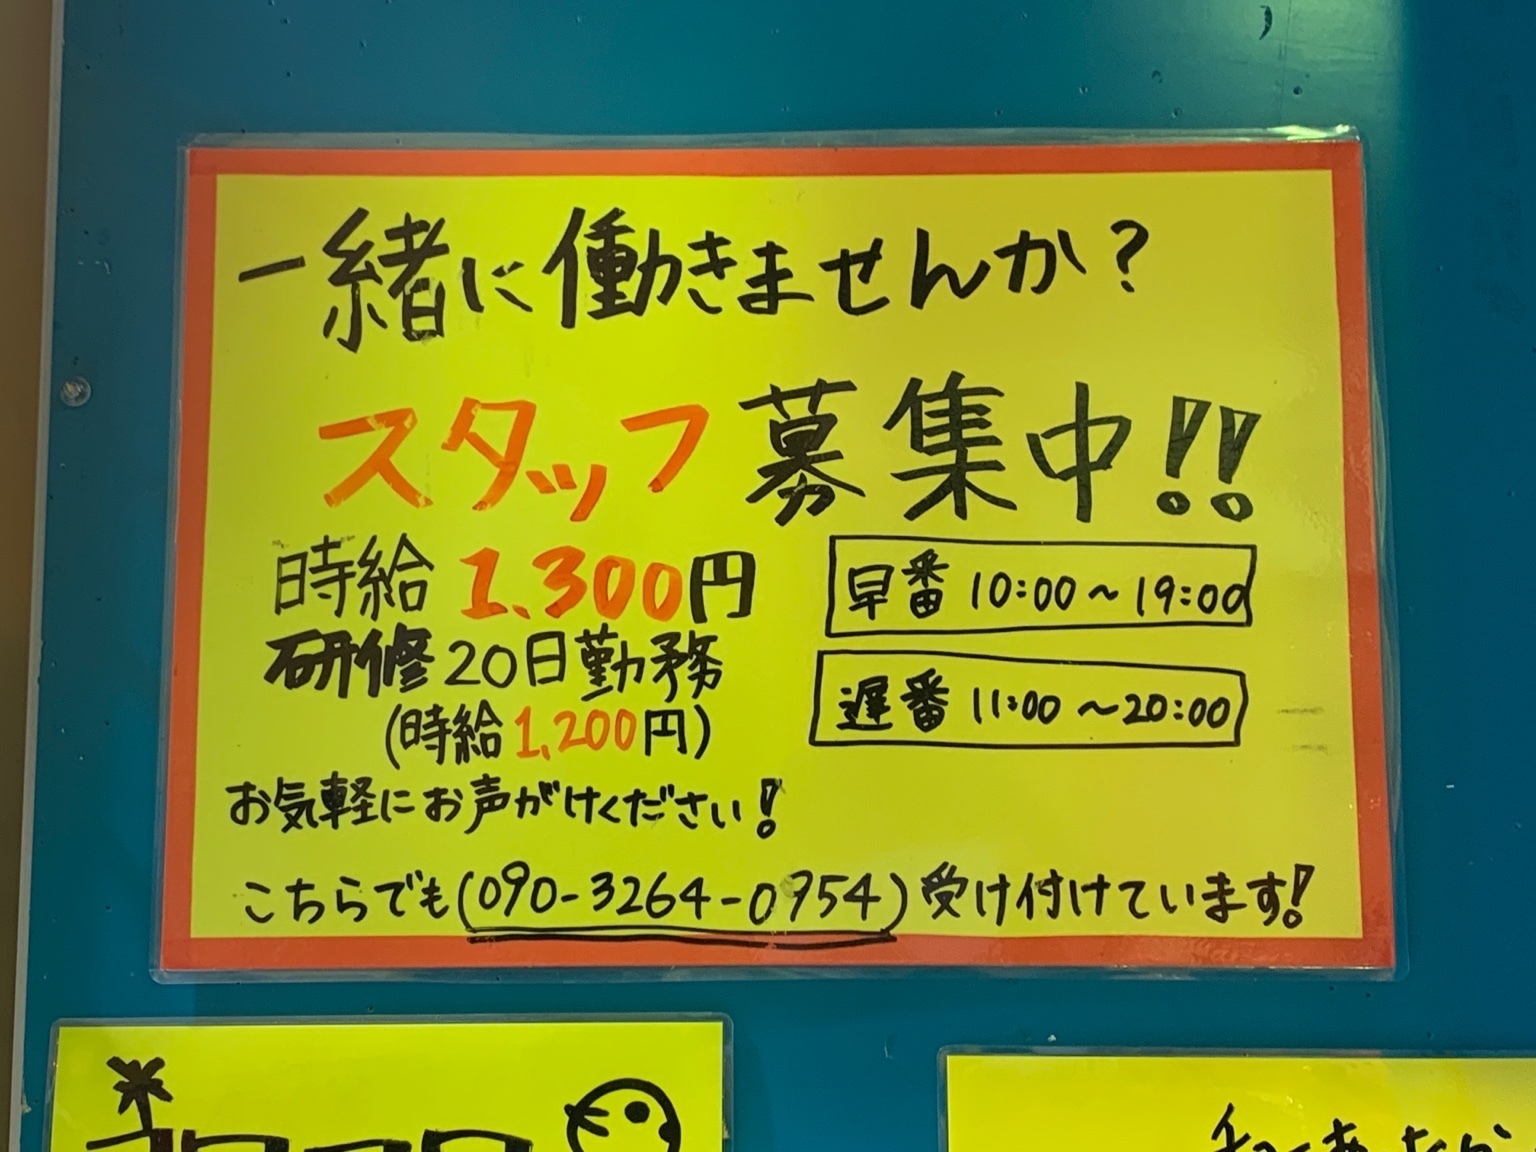 一緒に働きませんか?
スタッフ募集中!!
時給1,300円
研修20日勤務
(時給1,200円)
早番 10:00~19:00
遅番 11:00~20:00
お気軽にお声がけください!
こちらでも(090-3264-0954)受け付けています!